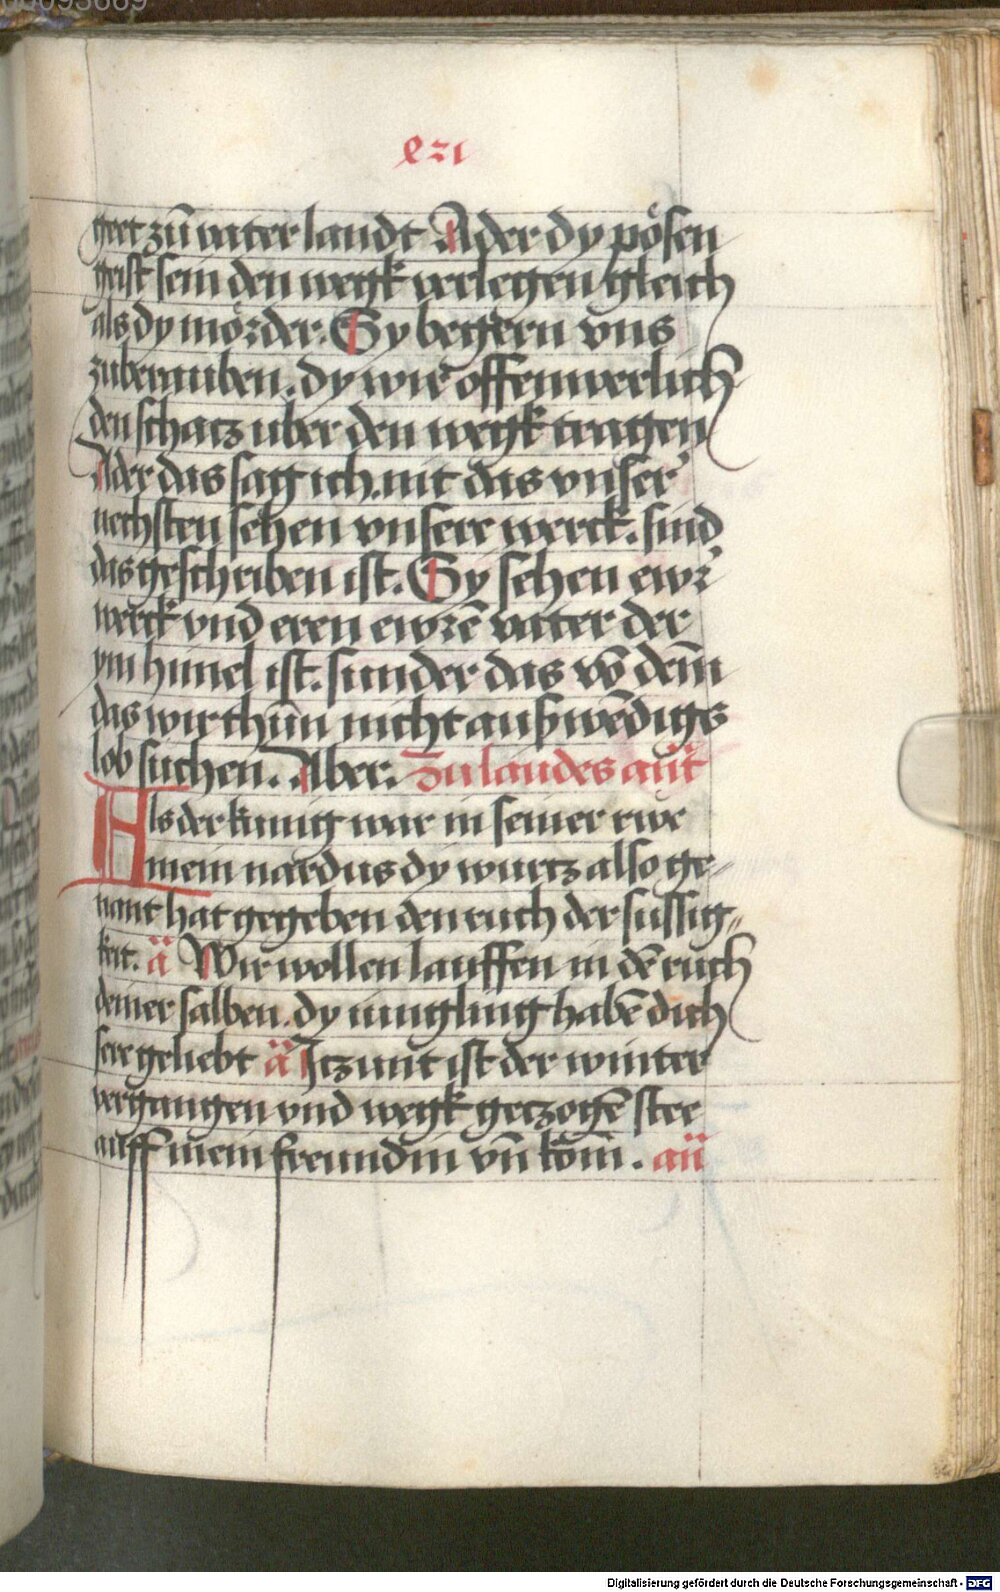 lxzı
geet zū vater landt Ader dy pösen
geist sein den wegk verlegen gleich
als dy mörder. Sy begern vns
zuberauben. dy wir offenwerlich
den schatz vber den wegk tragen
Ader das sag ich. nit das vnser
nechsten sehen vnsere werck. sind
das geschriben ist. Sy sehen ewr
werck vnd eren ewrē vater der
ym himel ist. sunder das vō dem
das wir thun nicht außwēdigs
lob suchen. Aber. Zu laudes añt
Als der kunig war in seiner rwe
mein nardus dy wurtz also ge-
nant hat gegeben den ruch der sussig-
keit. a Wir wollen lauffen in dē ruch
deiner salben. dy iungling habē dich
sere geliebt a Itzunt ist der winter
vergangen vnd wegk getzogē stee
auff mein freundin vn̄ kom̄. an
Digitalisierung gefördert durch die Deutsche Forschungsgemeinschaft - DFG